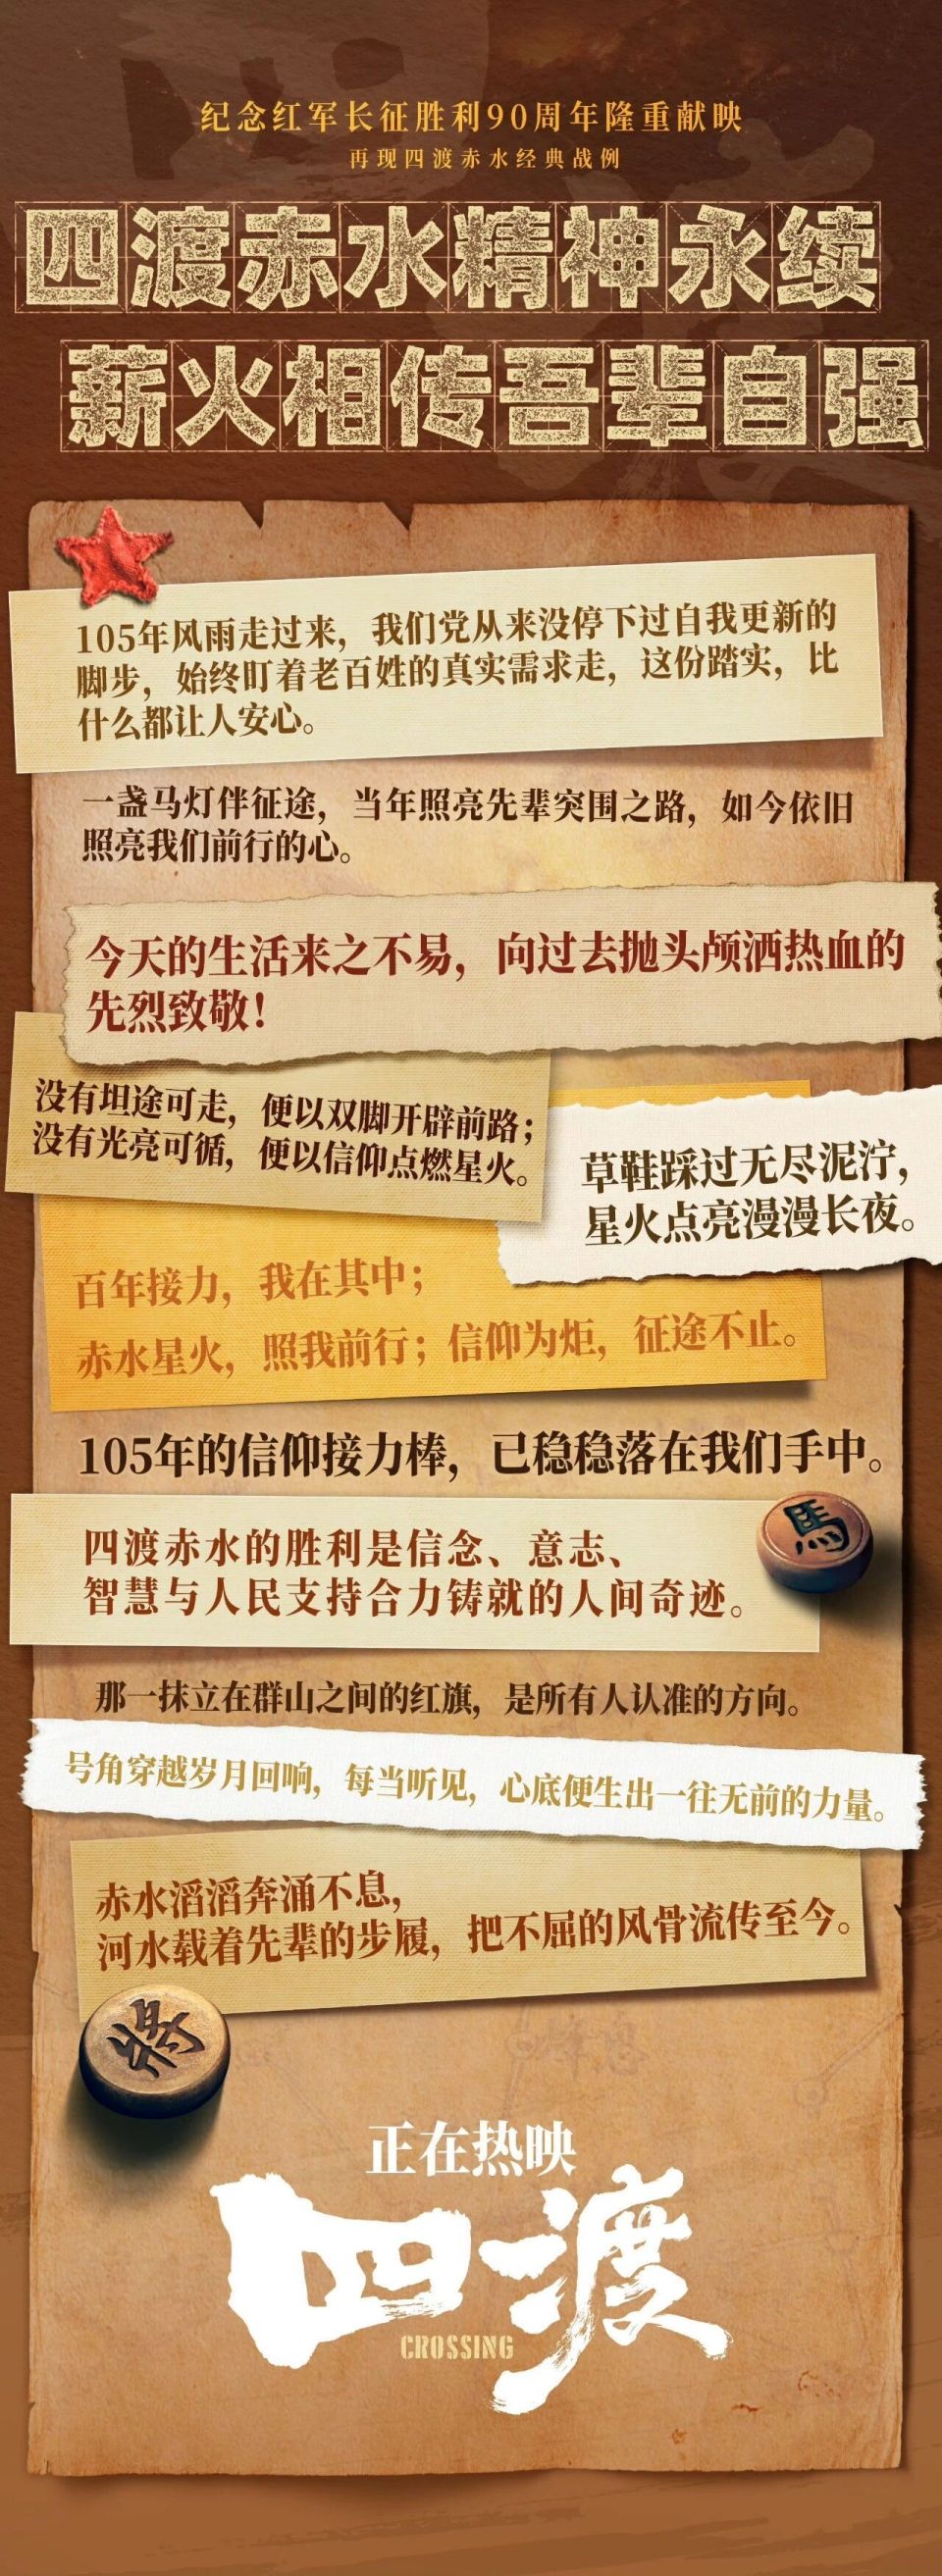 纪念红军长征胜利90周年隆重献映
再现四渡赤水经典战例
四渡赤水精神永续
薪火相传吾辈自强
105年风雨走过来，我们党从来没停下过自我更新的
脚步，始终盯着老百姓的真实需求走，这份踏实，比
什么都让人安心。
一盏马灯伴征途，当年照亮先辈突围之路，如今依旧
照亮我们前行的心。
今天的生活来之不易，向过去抛头颅洒热血的
先烈致敬！
没有坦途可走，便以双脚开辟前路；
没有光亮可循，便以信仰点燃星火。
草鞋踩过无尽泥泞，
星火点亮漫漫长夜。
百年接力，我在其中；
赤水星火，照我前行；信仰为炬，征途不止。
105年的信仰接力棒，已稳稳落在我们手中。
馬
四渡赤水的胜利是信念、意志、
智慧与人民支持合力铸就的人间奇迹。
那一抹立在群山之间的红旗，是所有人认准的方向。
号角穿越岁月回响，每当听见，心底便生出一往无前的力量。
赤水滔滔奔涌不息，
河水载着先辈的步履，把不屈的风骨流传至今。
将
正在热映
四渡
CROSSING